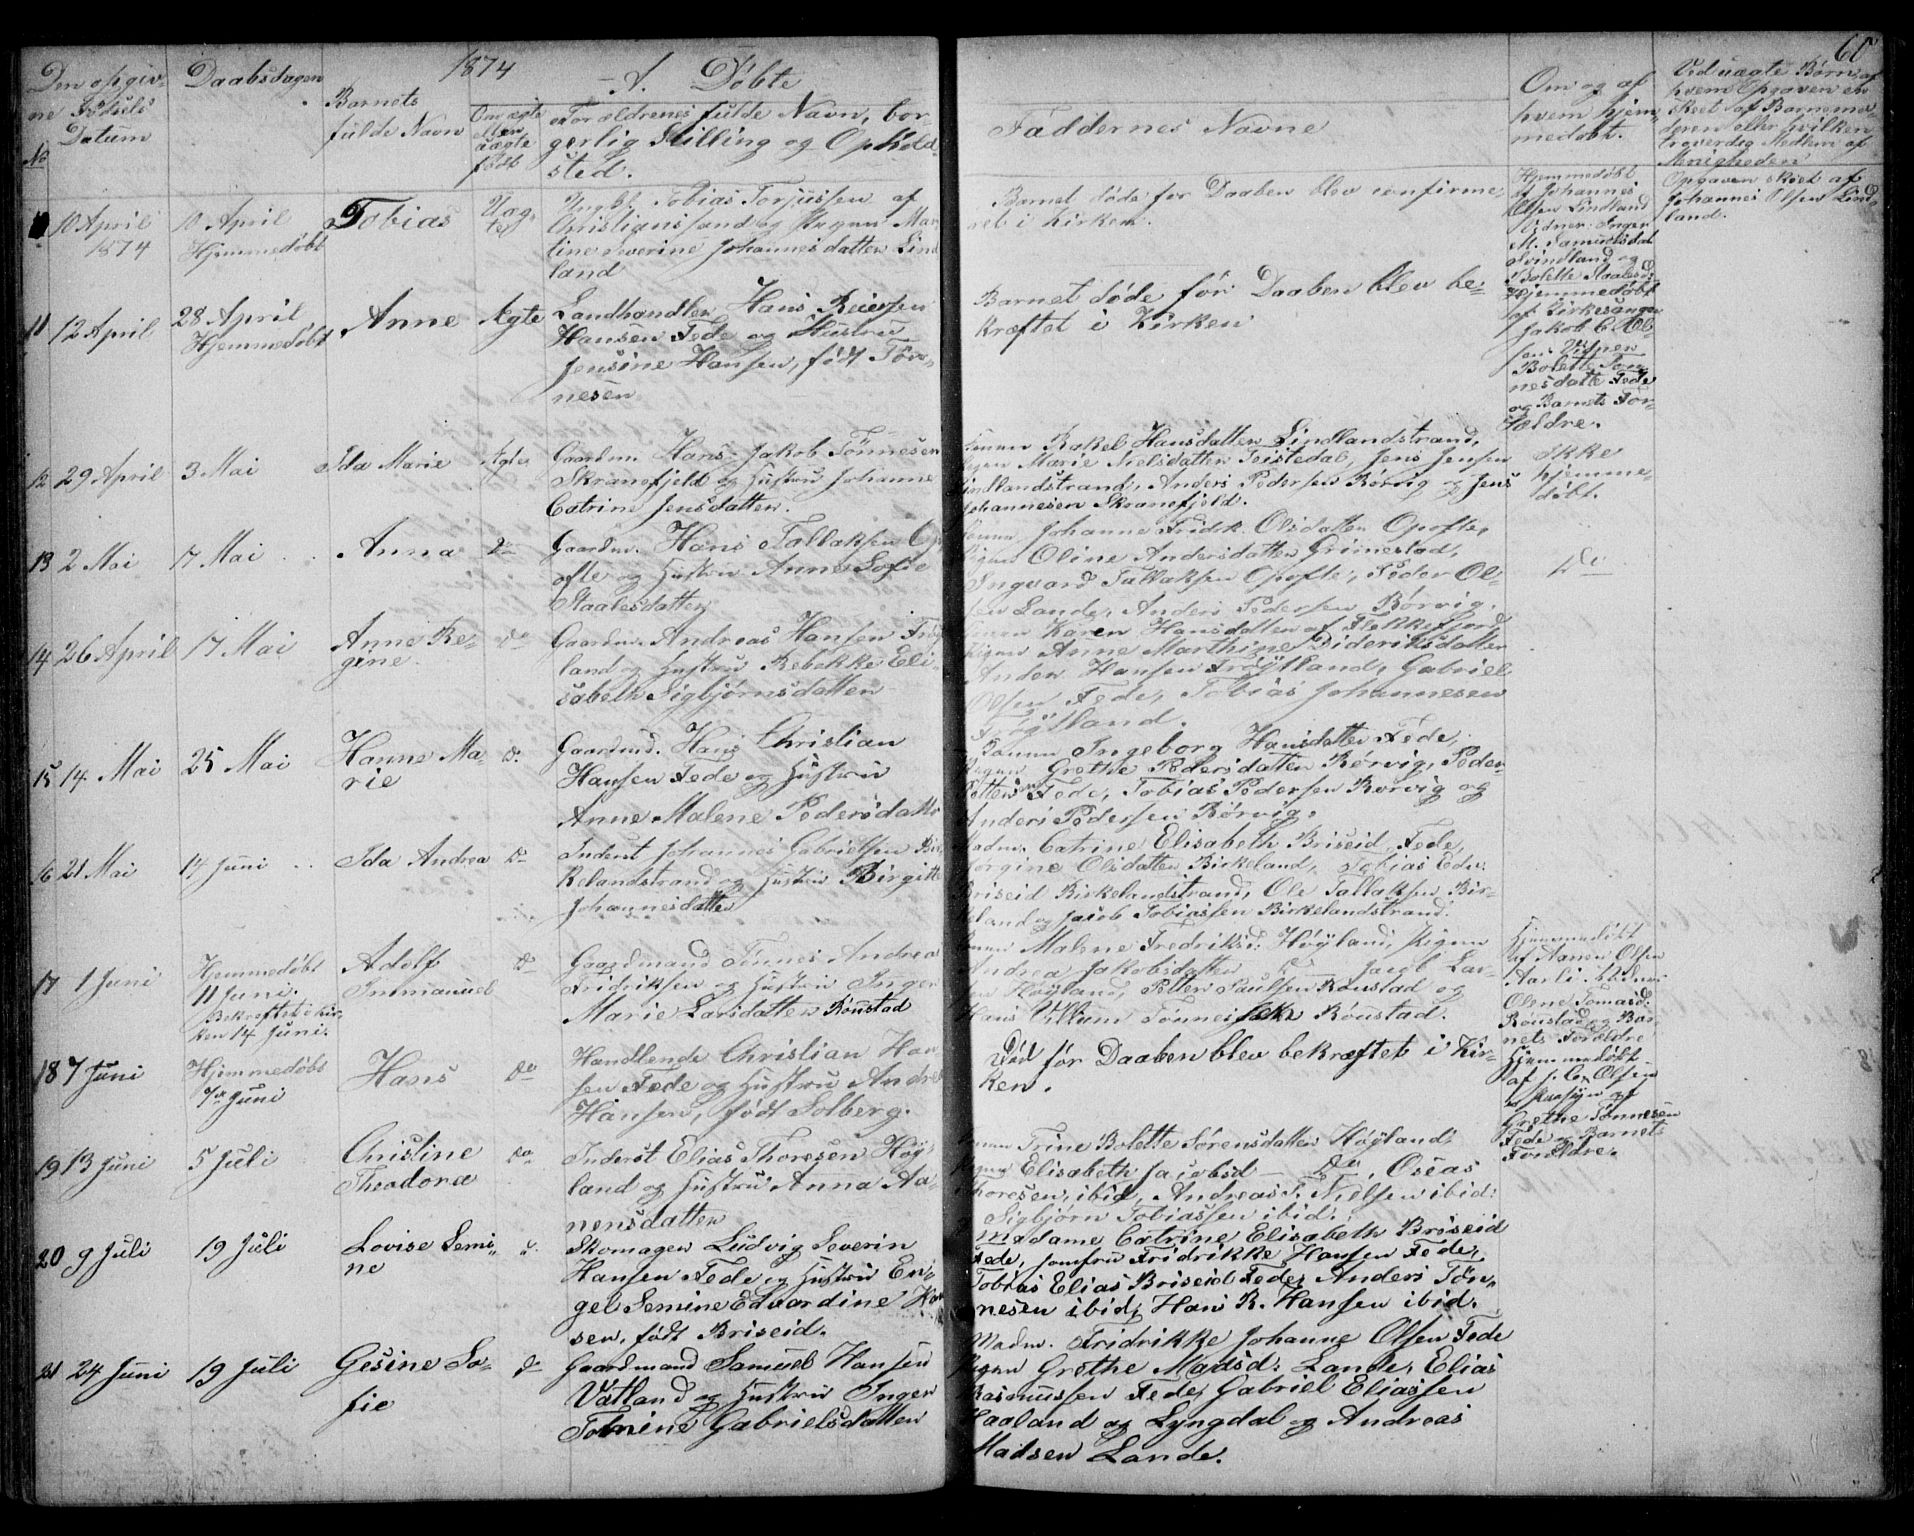 1874
A. Døbte
60
No
Den opgiv-
ne Fødsels
Datum
Daabsdagen
Barnets
fulde Navn
Om ægte
eller
uægte
født
Forældrenes fulde Navn, bor
gerlig Stilling og Ophold-
sted.
Faddernes Navne
Om og af
hvem hjem-
medøbt.
Ved uægte Børn af
hvem Opgaven er
skeet af Barnemo-
deren eller hvilken
troverdig Medlem af
Menigheden
10 April
1874
10 April
Hjemmedøbt
Tobias
Uæg-
te
Tobias Torjussen af
Christianssand og Pigen Mar
tine Severine Johannesdatter Lind
land
Barnet døde før Daaben blev confirme-
ret i Kirken.
Hjemmedøbt
af Johannes
Olsen Lindland
Vidner: Inger
M. Samuelsdat
Svindland og
Bolette Staalesd:
Opgaven skeet af
Johannes Olsen Lind-
land.
11
12 April
28 April
Hjemmedøbt
Anne
Ægte
Landhandler Hans Reiersen
Hansen Fede og Hustru
Jensine Hansen, født Tøn-
nesen
Barnet døde før Daaben blev be-
kræftet i Kirken
Hjemmedøbt
af Kirkesanger
Jakob C. Ol-
sen Vidner
Bolette Tøn-
nesdatte Fede
og Barnets For-
ældre.
12
29 April
3 Mai
Ida Marie
Ægte
Gaardm. Hans Jakob Tønnesen
Skranefjeld og Hustru Johanne
Catrine Jensdatter.
Konen Rakel Hansdatter Lindlandstrand,
Pigen Marie Nielsdatter Teistedal, Jens Jensen
Lindlandstrand, Anders Pedersen Rørvig og Jens
Johannesen Skranefjeld.
Ikke
hjemme-
døbt.
13
2 Mai
17 Mai
Anna
Do
Gaardm. Hans Tallaksen Op
ofte og Hustru Anne Sofie
Staalesdatter
Konen Johanne Fridk. Olsdatter Opofte,
Pigen Oline Andersdatter Grimestad,
Ingvard Tallaksen Opofte, Peder Ol-
sen Lande, Anders Pedersen Rørvig.
Do
14
26 April
17 Mai
Anne Re-
gine
Do
Gaardm. Andreas Hansen Frøy
land og Hustru Rebekke Eli-
sabeth Sigbjørnsdatter
Konen Karen Hansdatter af Flekkefjord
Pigen Anne Marthine Dideriksdatter
Anden Hansen Frøyland, Gabriel
Olsen Fede, Tobias Johannesen
Frøyland.
15
14 Mai
25 Mai
Hanne Ma-
rie
Do
Gaardmd. Hans Christian
Hansen Fede og Hustru
Anne Malene Pedersdatte
Konen Ingeborg Hansdatter Fede,
Pigen Grethe Pedersdatter Rørvig, Peder
Fede, Tobias Pedersen Rørvig og
Anders Pedersen Rørvig.
16
21 Mai
14 Juni
Ida Andrea
Do
Inderst Johannes Gabrielsen Bir
kelandstrand og Hustru Birgitte
Johannesdatter
Madm. Catrine Elisabeth Briseid, Fede,
Jørgine Olsdatter Birkeland, Tobias Edv.
Briseid Birkelandstrand, Ole Tallaksen Bir-
keland og Jacob Tobiassen Birkelandstrand.
17
1 Juni
Hjemmedøbt
11 Juni.
Bekræftet i Kir-
ken 14 Juni.
Adolf
Immanuel
Do
Gaardmand Tønnes Andreas
Fridriksen og Hustru Inger
Marie Larsdatter Rønstad
Konen Malene Fredriksd: Høyland, Pigen
Andrea Jakobsdatter Do Jacob Lar-
sen Høyland, Petter Paulsen Rønstad og
Hans Villum Tønnessen Rønstad.
Hjemmedøbt
af Aanen Olsen
Aarli. Vidner
Olene Tomasd:
Rønstad og Bar-
nets Foreldre
18
7 Juni
Hjemmedøbt
7de Juni
Hans
Do
Handlende Christian Han
sen Fede og Hustru Andrea
Hansen, født Solberg.
Død før Daaben blev bekræftet i Kir-
ken.
Hjemmedøbt
af J. C. Olsen
Grethe Tønnesen
Fede og Barnets
Foreldre.
19
13 Juni
5 Juli
Christine
Theodora
Do
Inderst Elias Thoresen Høy-
land og Hustru Anna Aa-
nensdatter
Konen Trine Bolette Sørensdatter Høyland
Pigen Elisabeth Jacobsd — Do, Oseas
Thoresen, ibid, Andreas T. Nielsen ibid:
Sigbjørn Tobiassen ibid:
20
9 Juli
19 Juli
Lovise Semi-
ne
Do
Skomager Ludvig Severin
Hansen Fede og Hustru En-
gel Semine Edvardine Han
sen, født Briseid.
Madame Catrine Elisabeth Briseid
Fede, Jomfru Fridrikke Hansen Fede,
Tobias Elias Briseid Fede, Anders Tøn-
nesen ibid, Hans R. Hansen ibid.
21
24 Juni
19 Juli
Gesine So-
fie
Do
Gaardmand Samuel Hansen
Vatland og Hustru Inger
Tomine Gabrielsdatter
Madm. Fridrikke Johanne Olsen Fede
Pigen Grethe Madsd: Lande, Elias
Rasmussen Fede, Gabriel Eliassen
Haaland og Lyngdal og Andreas
Madsen Lande.